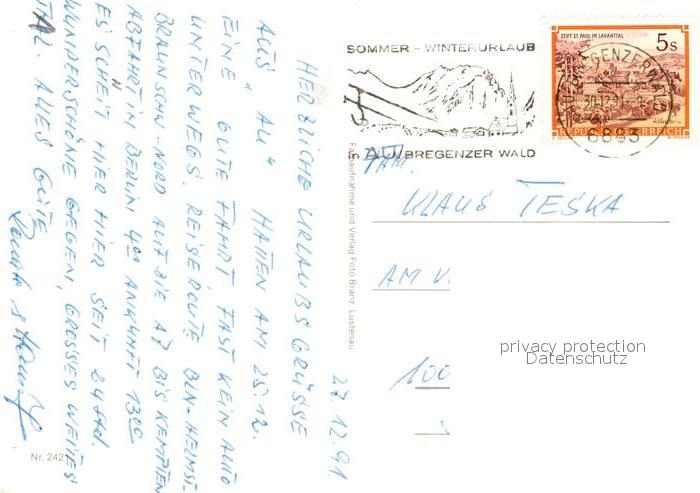 27.12.91.
HERZLICHE URLAUBS GRÜSSE
AUS "AU" HATTEN AM 25.12.
EINE GUTE FAHRT, FAST KEIN AUTO
UNTERWEGS. REISEROUTE BLN-HELMST-
BRAUNSCHW-NORD AUF DIE A7 BIS KEMPTEN
ABFAHRT IN BERLIN 4⁰⁰ ANKUNFT 13⁰⁰
ES SCHEIT HIER HIER SEIT 24 Std.
N
WUNDERSCHÖNE GEGEN, GROSSES WEITES
TAL. ALLES GUTE
Nr. 242
Farbaufnahme und Verlag Foto Branz, Lustenau
SOMMER - WINTERURLAUB
in AU/BREGENZER WALD
STIFT ST. PAUL IM LAVANTTAL
5s
REPUBLIK ÖSTERREICH
6883
FAM.
KLAUS TESKA
AM
100
privacy protection
Datenschutz